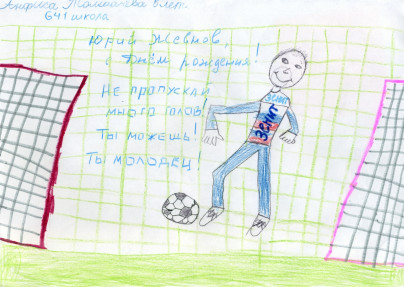 Анфиса Толмачёва 8 лет.
641 школа
Юрий Жевнов,
с Днём рождения!
Не пропускай
много голов!
Ты можешь!
Ты молодец!
ЗЕНИТ
ЗЕНИТ